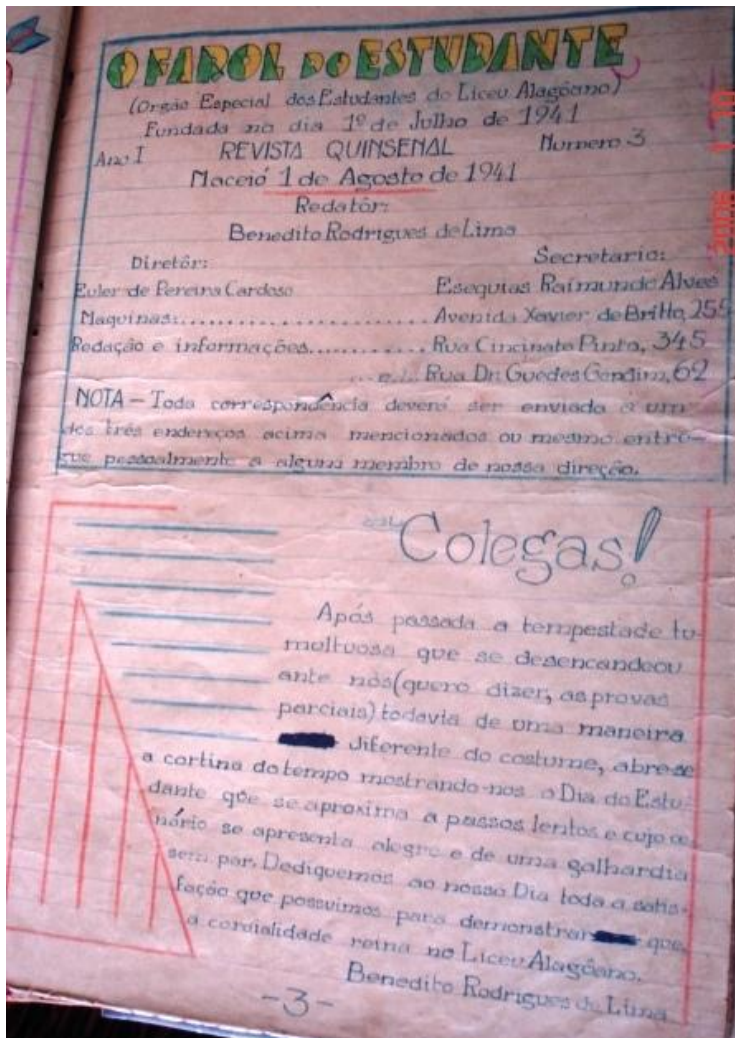 O FAROL DO ESTUDANTE
(Orgão Especial dos Estudantes do Liceu Alagôano)
Fundada no dia 1º de Julho de 1941
Ano I REVISTA QUINSENAL Numero 3
Maceió 1 de Agosto de 1941
Redatôr:
Benedito Rodrigues de Lima
Diretôr: Secretario:
Euler de Pereira Cardoso Esequias Raimundo Alves
Maquinas:........................ Avenida Xavier de Britto, 255
Redação e informações............ Rua Cincinato Pinto, 345
...e... Rua Dr. Guedes Gondim, 62
NOTA - Toda correspondência deverá ser enviada a um
dos três endereços acima mencionados ou mesmo entre-
gue pessoalmente a algum membro de nossa direção.
Colegas!
Após passada a tempestade tu-
moltuosa que se desencandeou
ante nós (quero dizer, as provas
parciais) todavia de uma maneira
diferente do costume, abre-se
a cortina do tempo mostrando-nos o Dia do Estu-
dante que se aproxima a passos lentos e cujo ce
nário se apresenta alegre e de uma galhardia
sem par. Dediquemos ao nosso Dia toda a satis-
fação que possuimos para demonstrar que
a cordialidade reina no Liceu Alagôano.
Benedito Rodrigues de Lima
-3-
2006 1 10